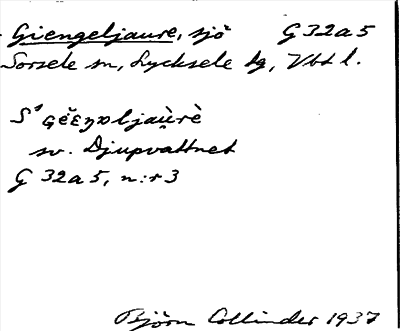 Giengeljaure, sjö G 32a5
Sorsele sn, Lycksele lg, Vbt l.
sv. Djupvattnet
G 32a5, n:r 3
Björn Collinder 1937